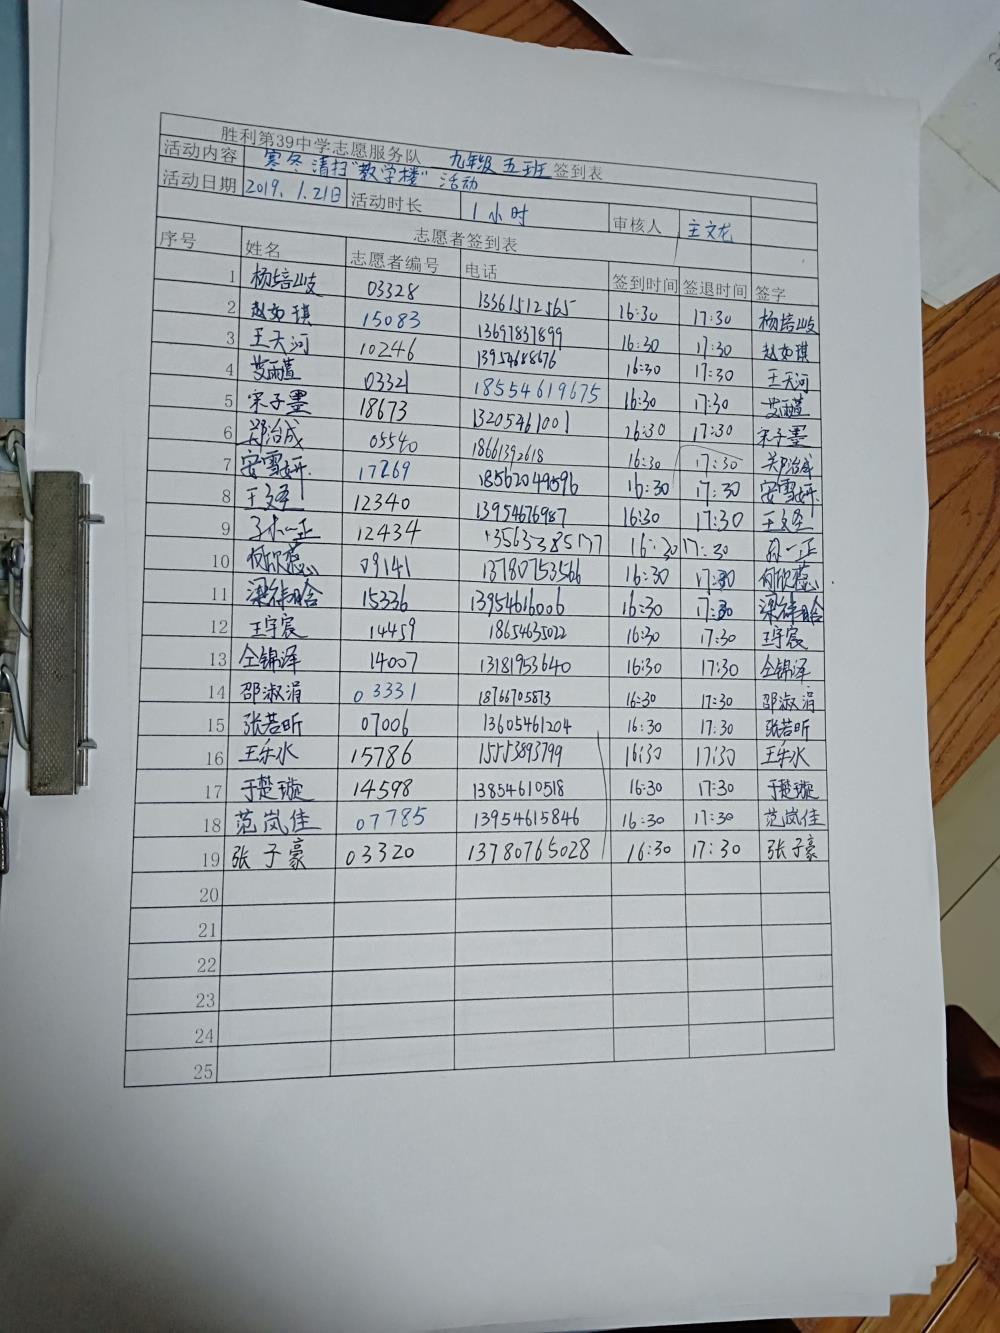 胜利第39中学志愿服务队 九年级 五班 签到表
活动内容 寒冬清扫"教学楼"活动
活动日期 2019.1.21日 活动时长 1小时 审核人 主文龙
志愿者签到表
序号 姓名 志愿者编号 电话 签到时间 签退时间 签字
1 杨培岐 03328 13361512565 16:30 17:30 杨培岐
2 赵如琪 15083 13697837899 16:30 17:30 赵如琪
3 王天河 10246 13954688676 16:30 17:30 王天河
4 03321 18554619675 16:30 17:30
5 宋子墨 18673 13205461001 16:30 17:30 宋子墨
6 郑治成 05540 18661392618 16:30 17:30 郑治成
7 安雪妍 17269 18562049596 16:30 17:30 安雪妍
8 12340 13954676987 16:30 17:30
9 孙一正 12434 16:30 17:30 孙一正
10 何欣蕊 09141 13780753566 16:30 17:30 何欣蕊
11 梁祎晗 15336 13954616006 16:30 17:30 梁祎晗
12 王宇宸 14459 18654635022 16:30 17:30 王宇宸
13 仝锦泽 14007 13181953640 16:30 17:30 仝锦泽
14 邵淑涓 03331 18766705873 16:30 17:30 邵淑涓
15 张若昕 07006 13605461204 16:30 17:30 张若昕
16 王乐水 15786 15553893799 16:30 17:30 王乐水
17 于楚璇 14598 13854610518 16:30 17:30 于楚璇
18 范岚佳 07785 13954615846 16:30 17:30 范岚佳
19 张子豪 03320 13780765028 16:30 17:30 张子豪
20
21
22
23
24
25